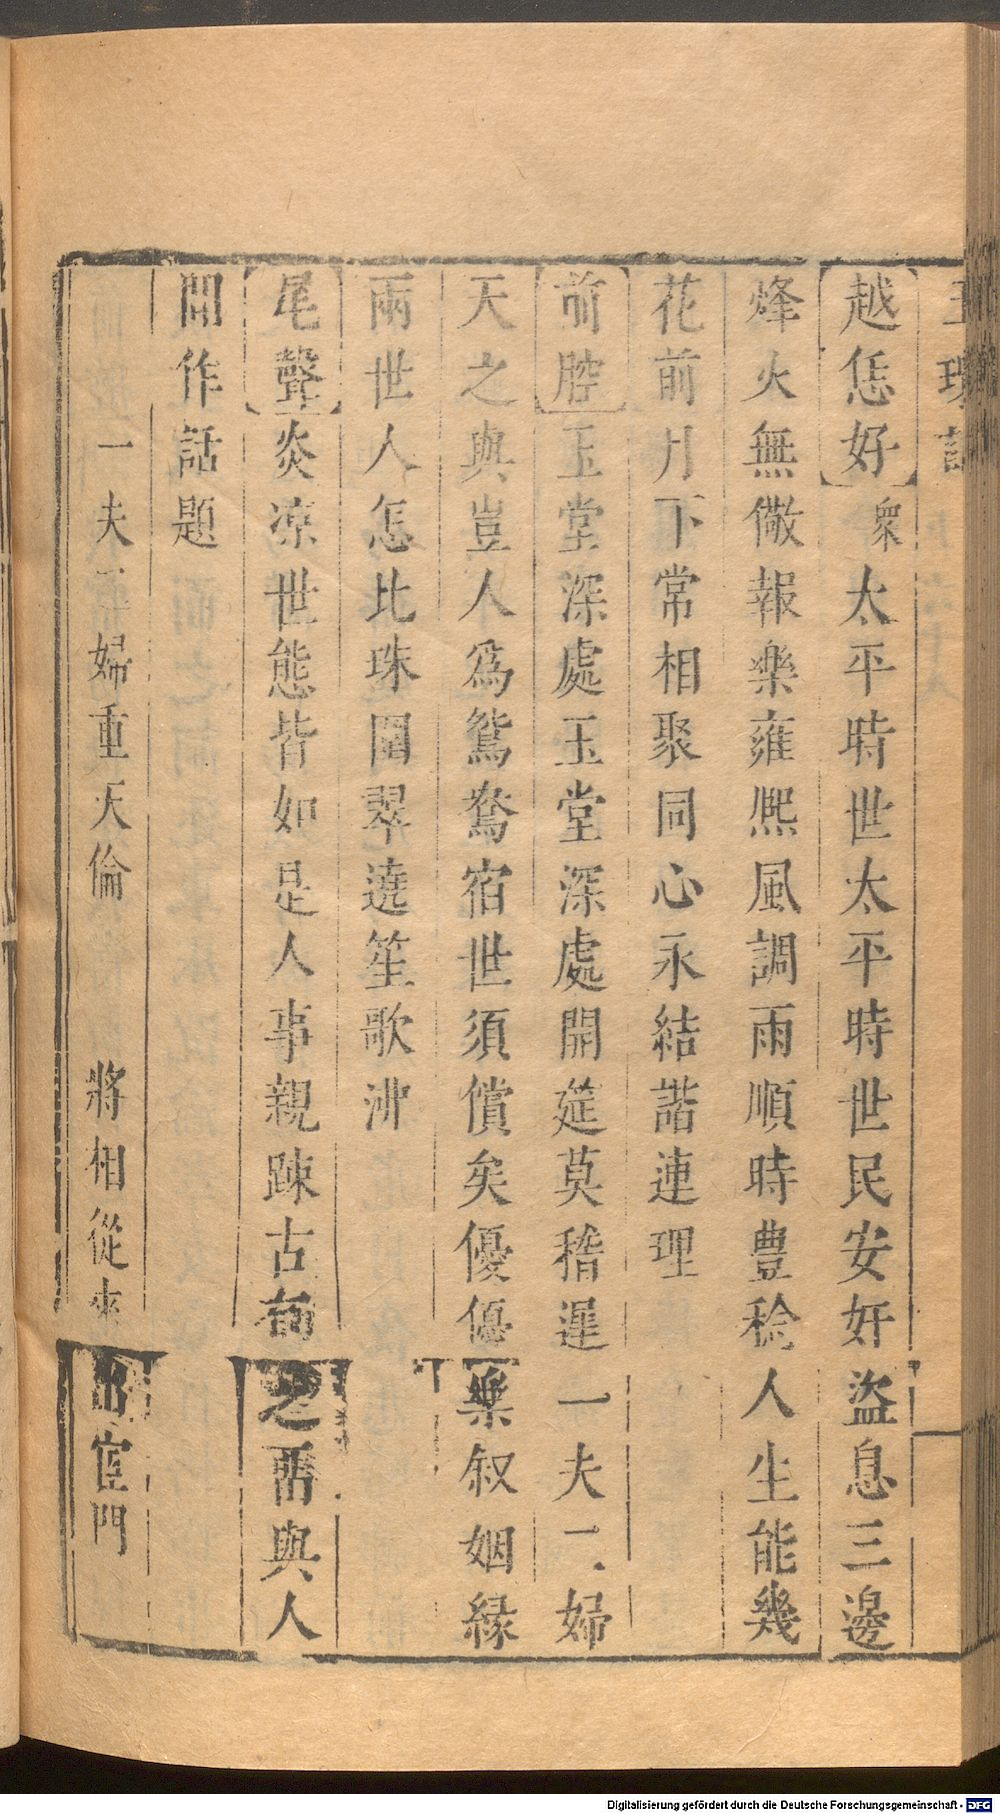 玉環記
越恁好衆太平時世太平時世民安奸盜息三邊
烽火無儆報樂雍熈風調雨順時豊稔人生能幾
花前月下常相聚同心永結諧連理
前腔玉堂深處玉堂深處開筵莫稽遲一夫二婦
天之與豈人爲鴛鴦宿世須償矣優優樂叙姻縁
兩世人怎比珠圍翠遶笙歌沸
尾聲炎凉世態皆如是人事親踈古有之畱與人
閒作話題
一夫二婦重天倫　將相從來出宦門
Digitalisierung gefördert durch die Deutsche Forschungsgemeinschaft - DFG